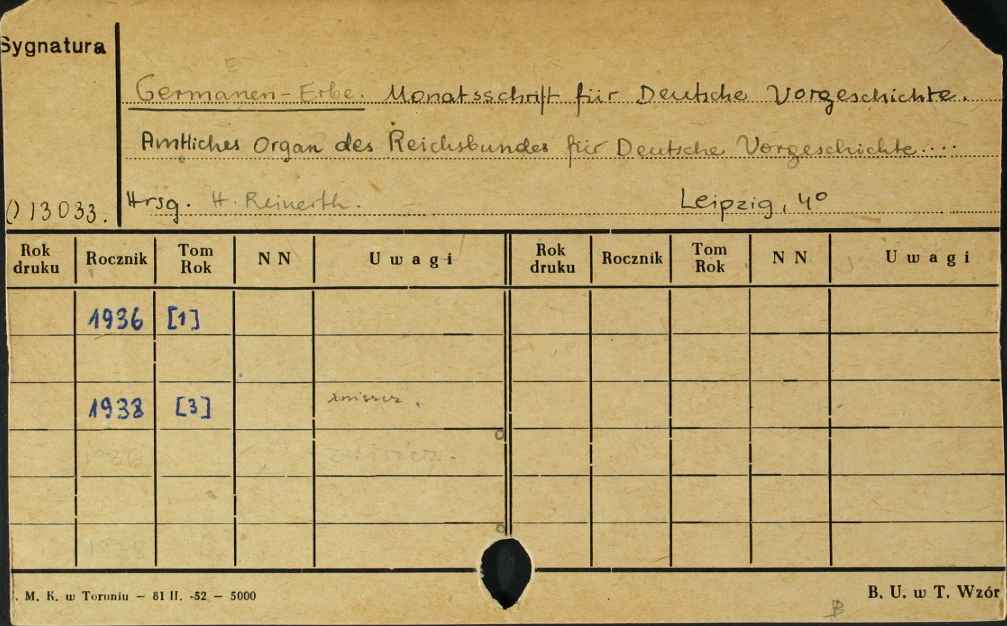 Sygnatura
Germanen-Erbe. Monatsschrift für Deutsche Vorgeschichte.
Amtliches Organ des Reichsbundes für Deutsche Vorgeschichte....
O 13033. Hrsg. H. Reinerth. Leipzig, 4°
Rok druku Rocznik Tom Rok NN Uwagi Rok druku Rocznik Tom Rok NN Uwagi
1936 [1]
1938 [3]
. M. K. w Toruniu — 81 II. -52 — 5000 B. U. w T. Wzór
B